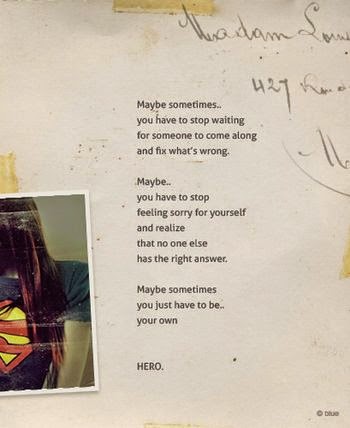 Madam
427
Maybe sometimes..
you have to stop waiting
for someone to come along
and fix what's wrong.
Maybe..
you have to stop
feeling sorry for yourself
and realize
that no one else
has the right answer.
Maybe sometimes
you just have to be..
your own
HERO.
© blue